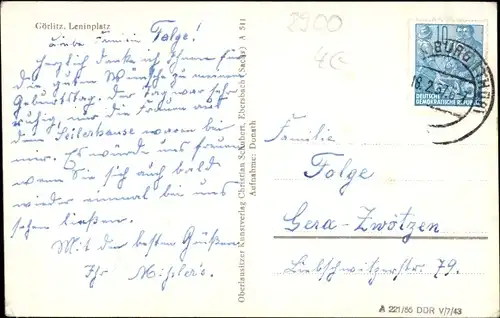 Görlitz, Leninplatz
Liebe Familie Folge!
Herzlich danke ich Ihnen für
die guten Wünsche zu meinem
Geburtstag. Der Tag war sehr
ruhig, nur die Frauen aus
dem Seilerhause waren bei
mir. Es würde uns freuen
wenn Sie sich auch bald
wieder einmal bei uns
sehen ließen.
Mit den besten Grüßen
Ihr
Oberlausitzer Kunstverlag Christian Schubert, Ebersbach (Sachs) A 541
Aufnahme: Donath
DEUTSCHE
DEMOKRATISCHE REPUBLIK
Familie
Folge
Gera-Zwötzen
Liebschwitzerstr. 79.
A 221/56 DDR V/7/43